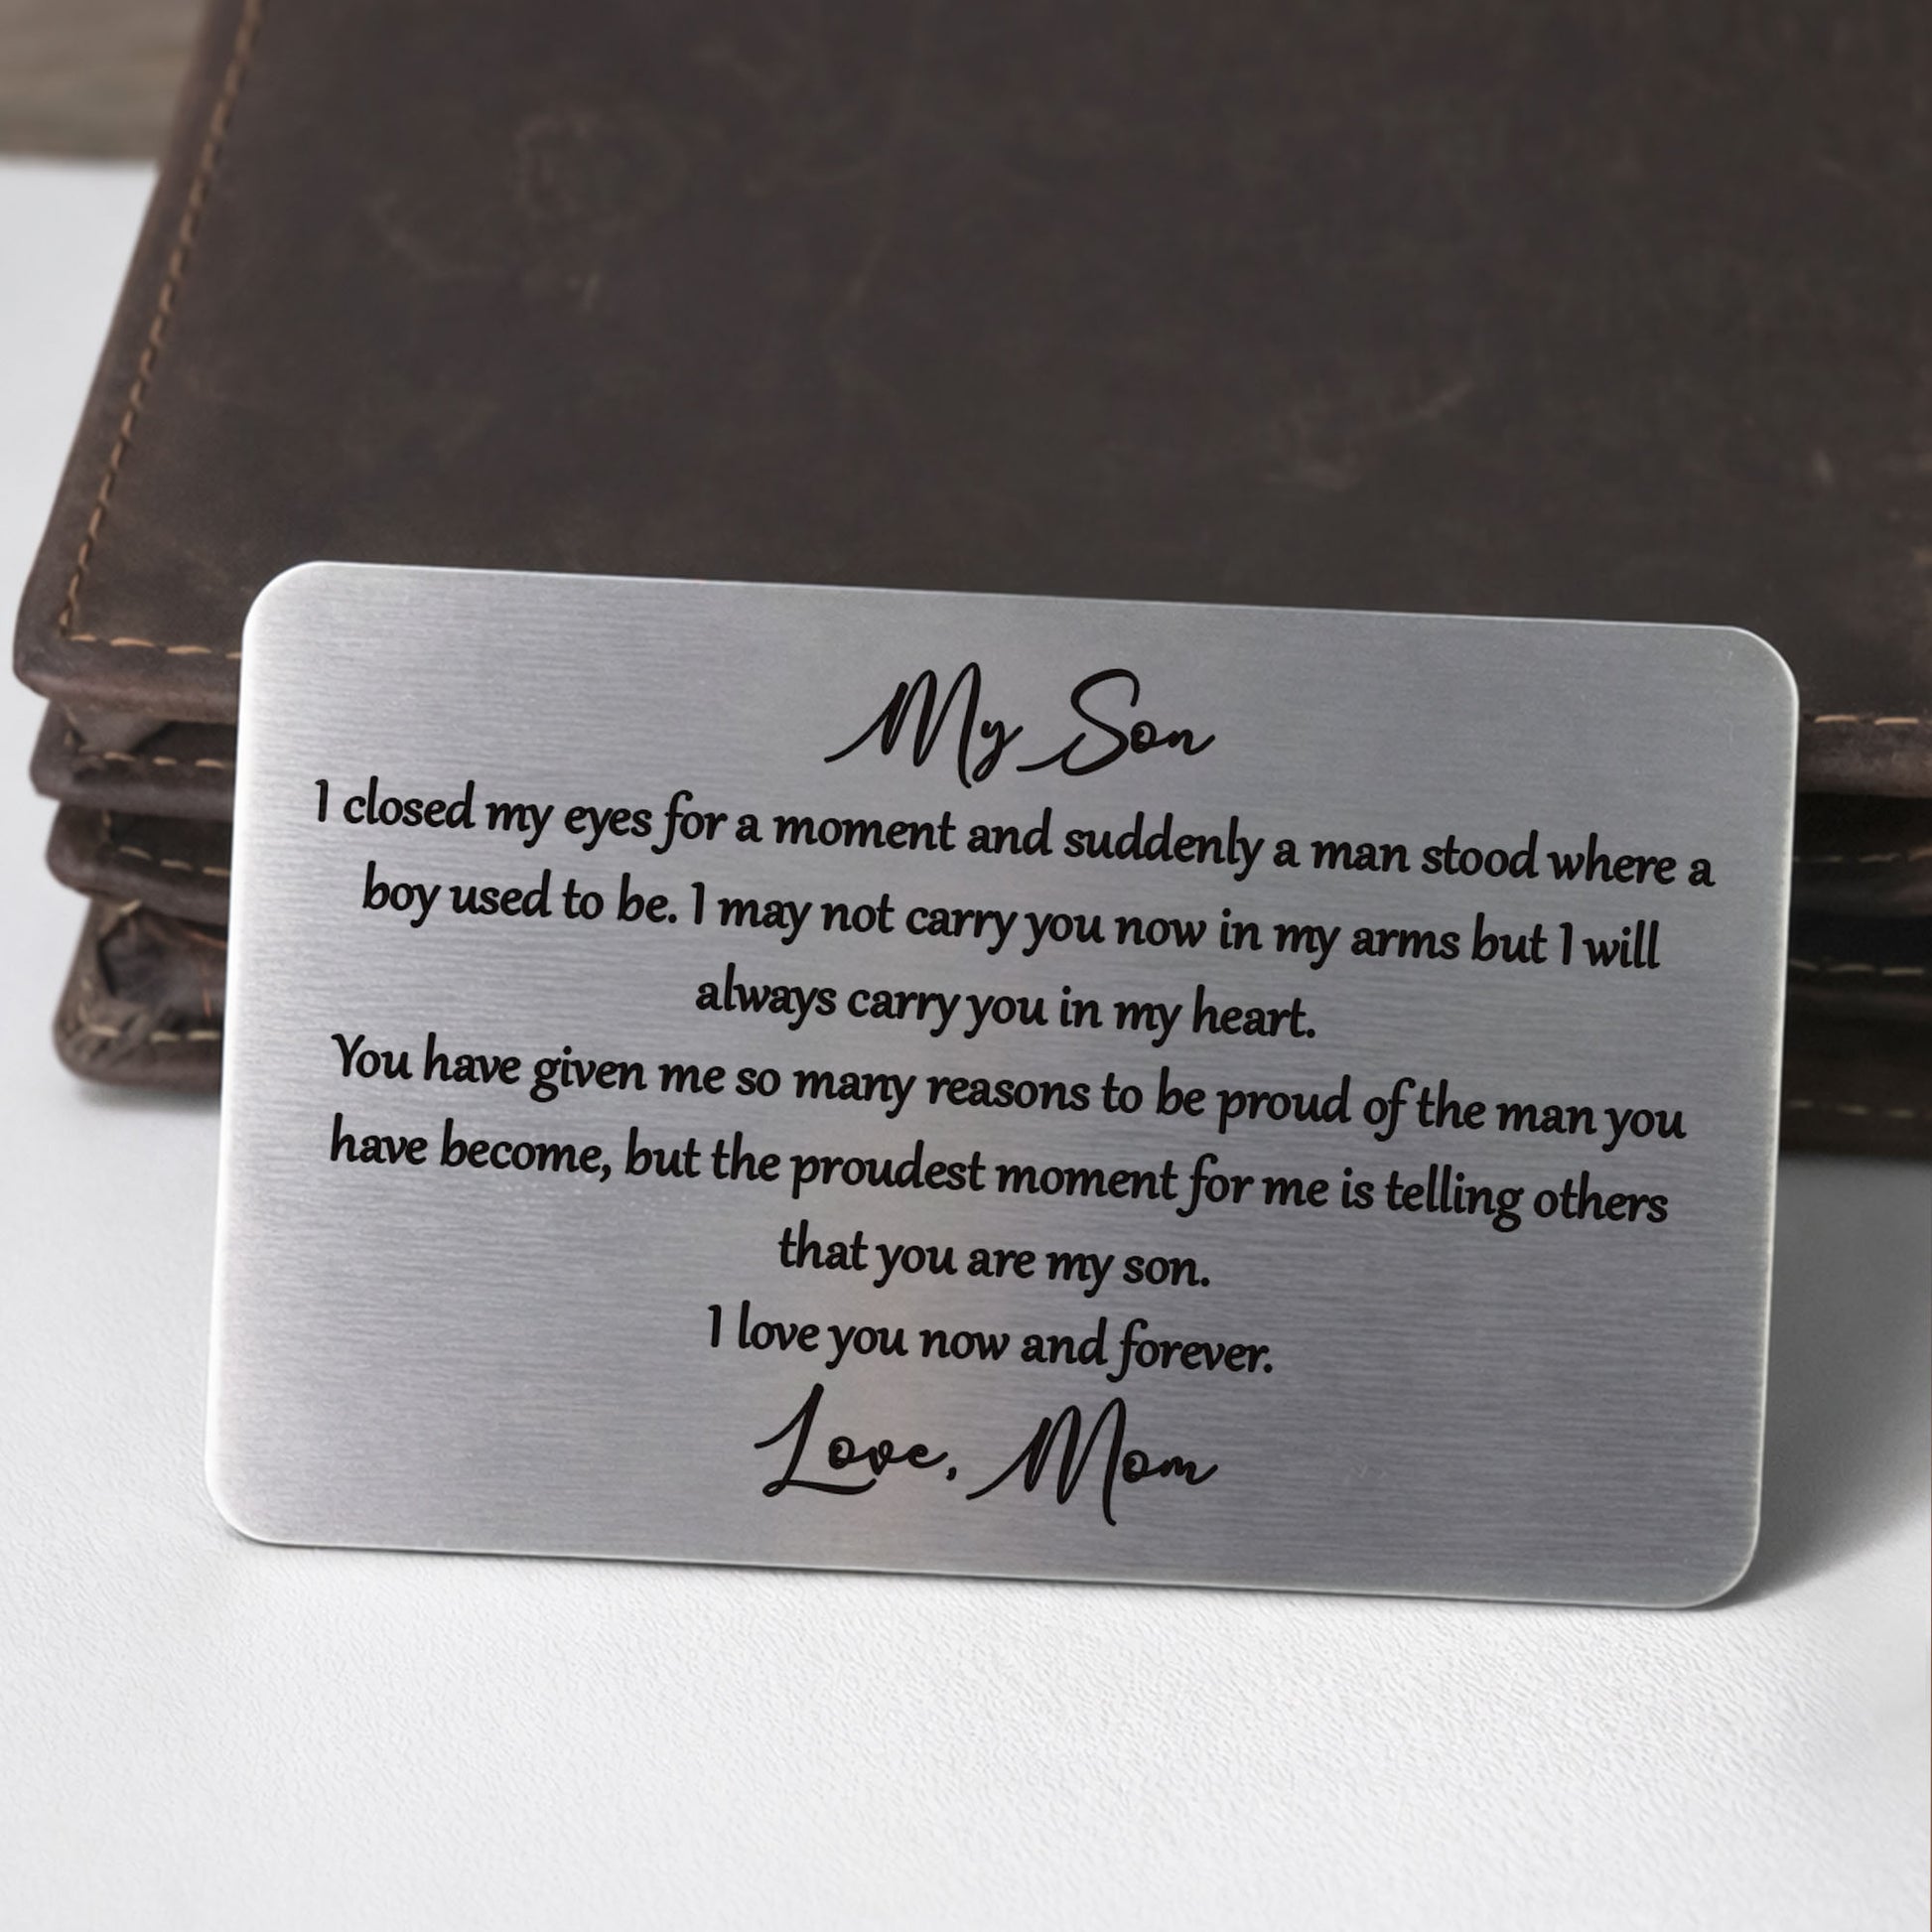 My Son
I closed my eyes for a moment and suddenly a man stood where a
boy used to be. I may not carry you now in my arms but I will
always carry you in my heart.
You have given me so many reasons to be proud of the man you
have become, but the proudest moment for me is telling others
that you are my son.
I love you now and forever.
Love, Mom